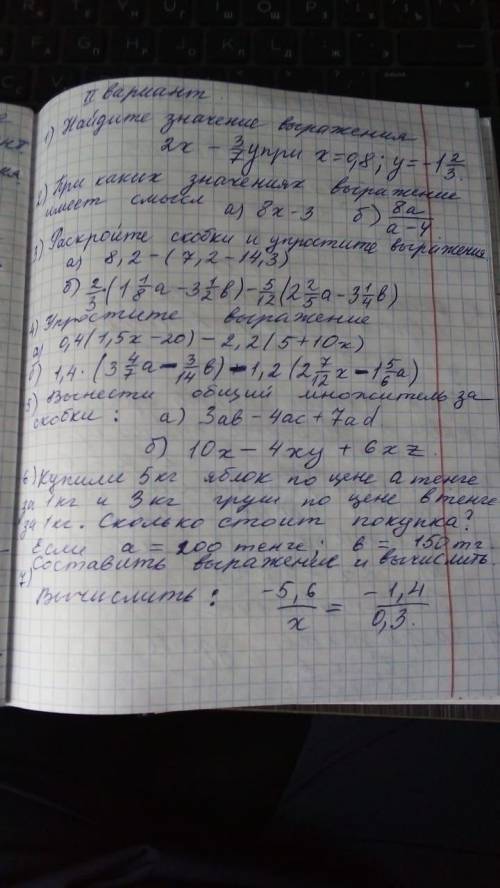 II вариант
1) Найдите значение выражения
2x - 3/7 y при x = 0,8; y = -1 2/3.
2) При каких значениях выражение
имеет смысл а) 8x-3 б) 8a/(a-4)
3) Раскройте скобки и упростите выражения
а) 8,2 - (7,2 - 14,3)
б) 2/3 (1 1/8 a - 3 1/2 b) - 5/12 (2 2/5 a - 3 1/4 b)
4) Упростите выражение
а) 0,4(1,5x - 20) - 2,2(5 + 10x)
б) 1,4 · (3 4/7 a - 3/14 b) - 1,2 (2 7/12 x - 1 5/6 a)
5) Вынести общий множитель за
скобки: а) 3ab - 4ac + 7ad
б) 10x - 4xy + 6xz.
6) Купили 5 кг яблок по цене a тенге
за 1 кг и 3 кг груш по цене в тенге
за 1 кг. Сколько стоит покупка?
Если a = 200 тенге; в = 150 тг.
Составить выражение и вычислить.
7)
Вычислить: -5,6/x = -1,4/0,3.